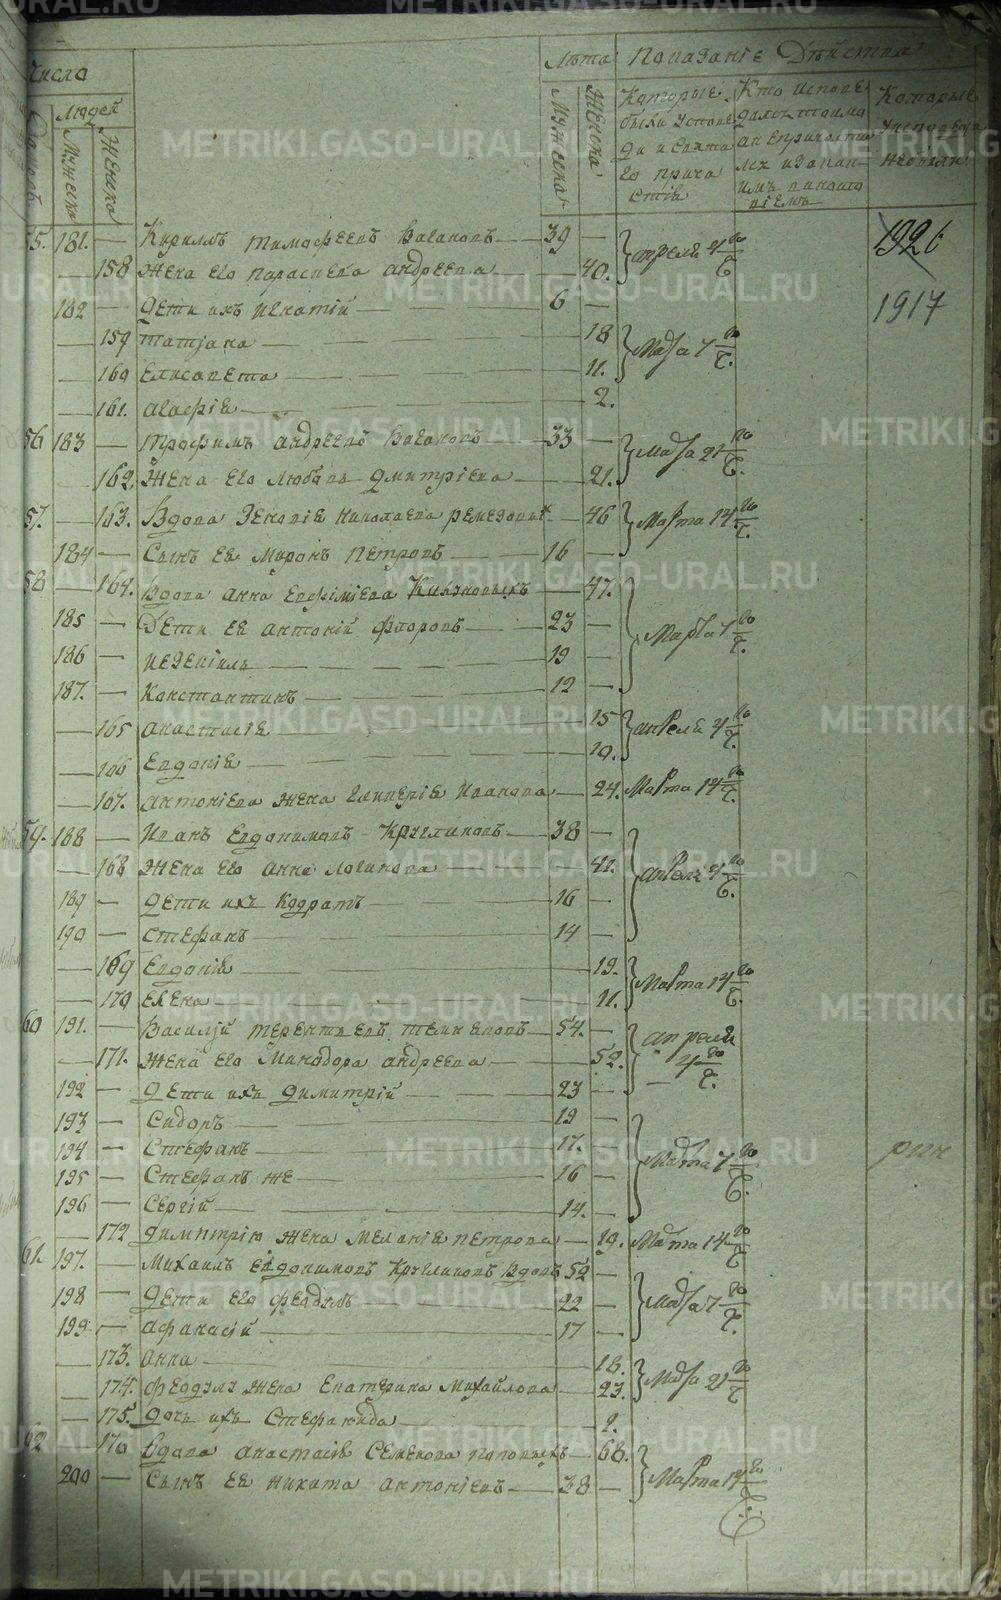 Число Лѣта Показанiе Дѣйства
Людей
Домовъ Мужеска Женска Мужеска Женска
Которые были у исповеди и святаго причастiя
Кто исповедался токмо а не причастился и за каким винословiем
Которые у исповеди не были
55. 181. — Кириллъ Тимофеевъ Вагановъ — 39 — Апреля 4 го ч.
1926
— 158 Жена его Параскева Андреева — 40.
182 — Дети ихъ Игнатiй — 6 —
1917
— 159 Татiана — 18 Марта 7 го ч.
— 160 Елисавета — 11.
— 161. Агафiя — 2.
56 183 — Трофимъ Андреевъ Вагановъ — 33 — Марта 21 го ч.
— 162. Жена его Любовь Димитрiева — 21.
57. — 163. Вдова Зеновiя Николаева — 46 Марта 14 го ч.
184 — Сынъ ея Миронъ Петровъ — 16 —
58 — 164. Вдова Анна Евфимiева — 47.
185 — Дети ея Антонiй Флоровъ — 23 — Марта 7 го ч.
186 — Иезекiиль — 19 —
187. — Константинъ — 12 —
— 165 Анастасiя — 15 Апреля 4 го ч.
— 166 Евдокiя — 10.
— 167. Антонiева жена Гликерiя Иванова — 24. Марта 14 го ч.
59. 188 — Иванъ Евдокимовъ Кругликовъ — 38 —
— 168 Жена его Анна Логинова — 41. Апреля 4 го ч.
189 — Дети ихъ Кодратъ — 16 —
190 — Стефанъ — 14 —
— 169 Евдокiя — 19. Марта 14 го ч.
— 170 Елена — 11.
60 191. — Василiй Терентьевъ — 54. — Апреля 4 го ч.
— 171. Жена его Минодора Андреева — 52.
192 — Дети ихъ Димитрiй — 23 —
193 — Сидоръ — 19 —
194 — Стефанъ — 17. — Марта 7 го ч.
195 — Стефанъ же — 16 —
196 — Сергiй — 14. —
— 172 Димитрiю жена Меланiя Петрова — 19. Марта 14 го ч.
61. 197. — Михаилъ Евдокимовъ Кругликовъ вдовъ 52 —
198 — Дети его Феодулъ — 22 — Марта 7 го ч.
199 — Афанасiй — 17 —
— 173. Анна — 18.
— 174. Феодула жена Екатерина Михайлова — 23. Марта 21 го ч.
— 175. Дочь ихъ Стефанида — 2.
62 — 176 Вдова Анастасiя Семенова Поповыхъ — 68.
200 — Сынъ ея Никита Антонiевъ — 38 — Марта 14 го ч.
METRIKI.GASO-URAL.RU